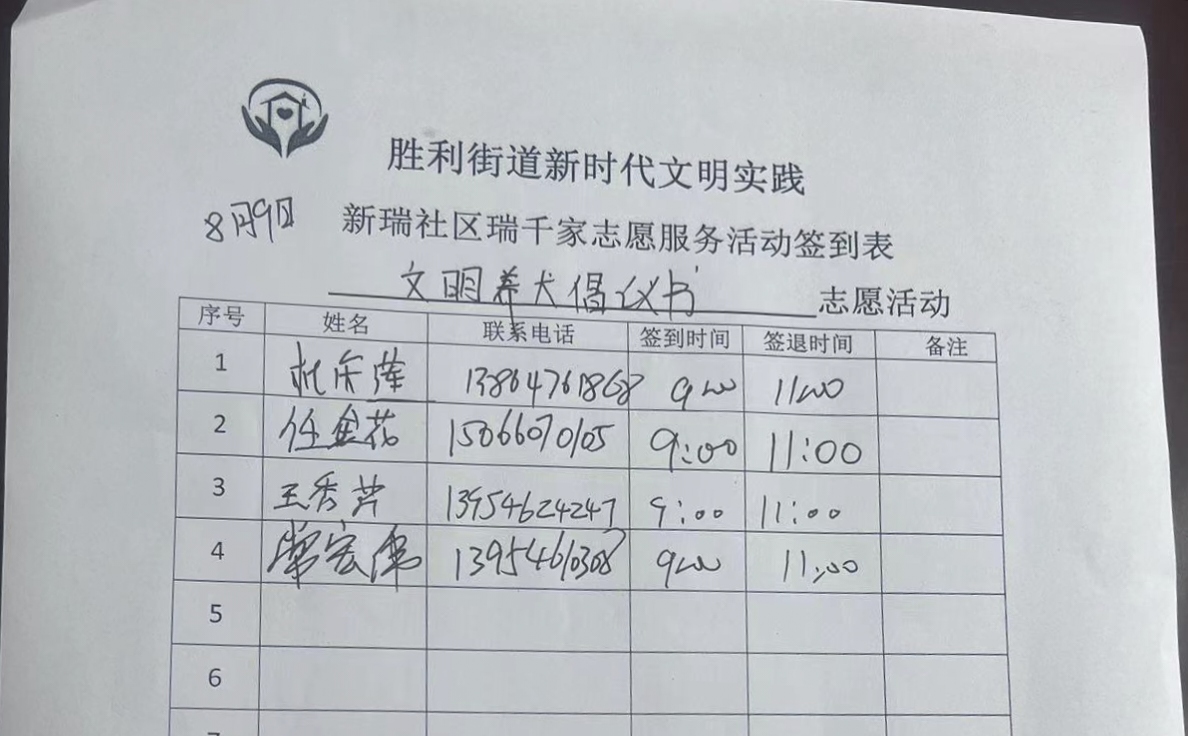 胜利街道新时代文明实践
8月9日 新瑞社区瑞千家志愿服务活动签到表
文明养犬倡议书 志愿活动
序号 姓名 联系电话 签到时间 签退时间 备注
1 杜庆莲 13864761868 9:00 11:00
2 任金花 15066070105 9:00 11:00
3 王秀芹 13954624247 9:00 11:00
4 常宏伟 13954610308 9:00 11:00
5
6